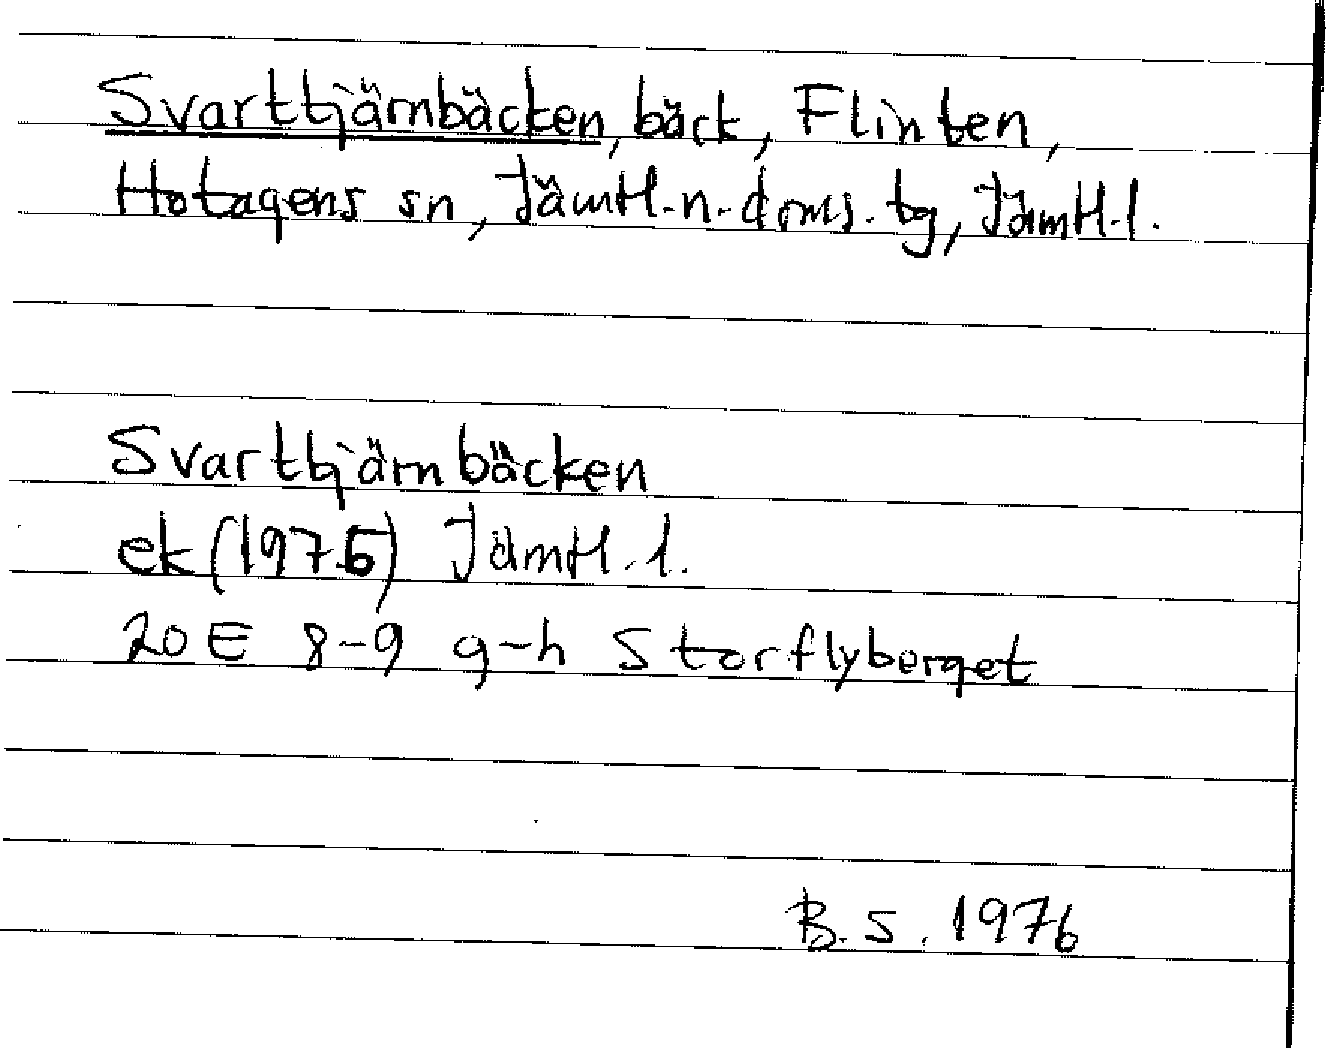 Svarttjärnbäcken, bäck, Flinten,
Hotagens sn, Jämtl.n.doms.tg, Jämtl.l.
Svarttjärnbäcken
ek (1975) Jämtl.l.
20 E 8-9 g-h Storflyberget
B.S. 1976